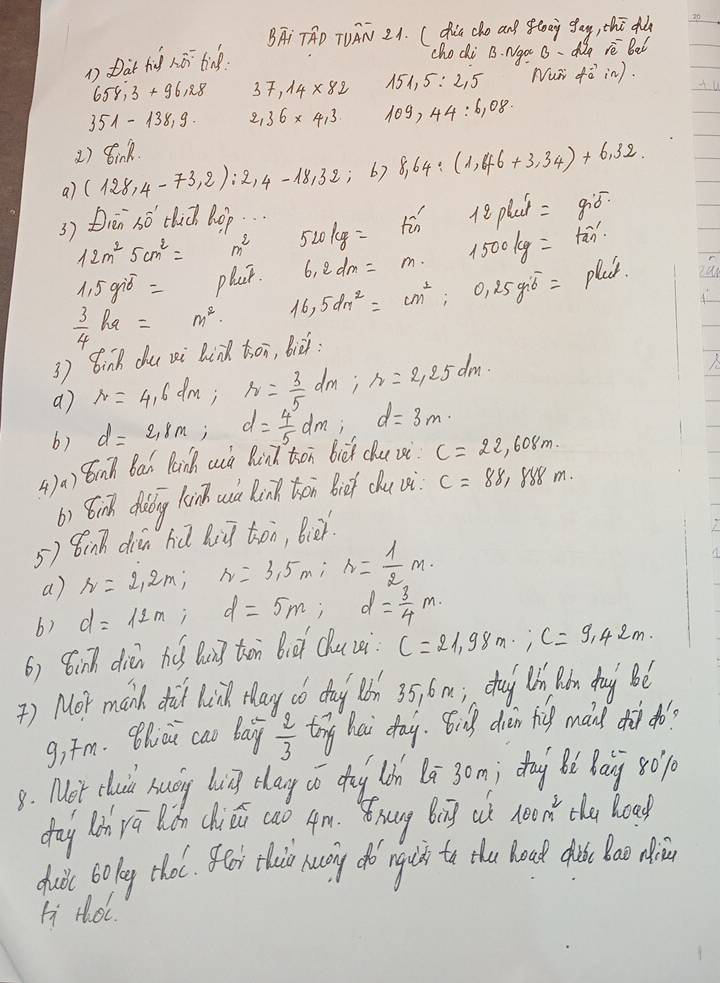 BÀI TẬP TUẦN 21. ( đưa cho anh Hoàng Jay, chị đưa
cho chị B. Nga B - đưa về bà
Nuôi để in).
1) Đặt tính rồi tính:
658,3 + 96,28 37,14 × 82 151,5 : 2,5
351 - 138,9. 2,36 × 4,3 109,44 : 6,08.
2) Tính.
a) (128,4 - 73,2) : 2,4 - 18,32 ; b) 8,64 : (1,46 + 3,34) + 6,32.
3) Điền số thích hợp ...
12m² 5cm² = m² 520kg = tấn 12 phút = giờ.
1,5 giờ = phút. 6,2 dm = m. 1500kg = tấn.
3/4 ha = m². 16,5dm² = cm² ; 0,25 giờ = phút.
3) Tính chu vi hình tròn, biết :
a) r = 4,6 dm ; r = 3/5 dm ; r = 2,25 dm.
b) d = 2,8m ; d = 4/5 dm ; d = 3m.
4) a) Tính bán kính của hình tròn biết chu vi : C = 22,608m.
b) Tính đường kính của hình tròn biết chu vi : C = 88,888 m.
5) Tính diện tích hình tròn, biết.
a) r = 2,2m ; r = 3,5m ; r = 1/2 m.
b) d = 12m ; d = 5m ; d = 3/4 m.
6) Tính diện tích hình tròn biết chu vi : C = 21,98m. ; C = 9,42m.
7) Một mảnh đất hình thang có đáy lớn 35,6m ; đáy lớn hơn đáy bé
9,7m. Chiều cao bằng 2/3 tổng hai đáy. Tính diện tích mảnh đất đó ?
8. Một thửa ruộng hình thang có đáy lớn là 30m ; đáy bé bằng 80%
đáy lớn và hơn chiều cao 4m. Trung bình cứ 100m² thu hoạch
được 60kg thóc. Hỏi thửa ruộng đó người ta thu hoạch được bao nhiêu
tạ thóc.